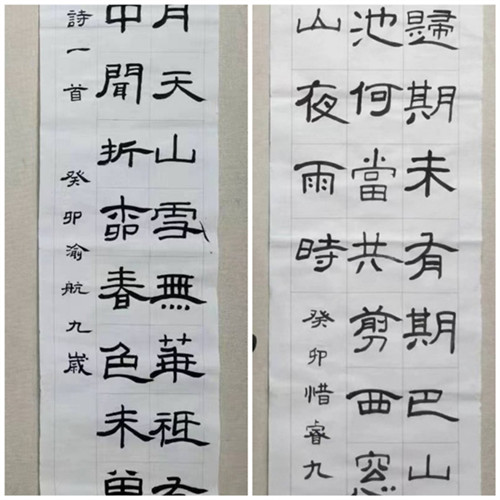 月天山雪無華祗
中聞折桺春色未曾
詩一首 癸卯渝航九歲
歸期未有期巴山
池何當共剪西窓
山夜雨時 癸卯惜睿九